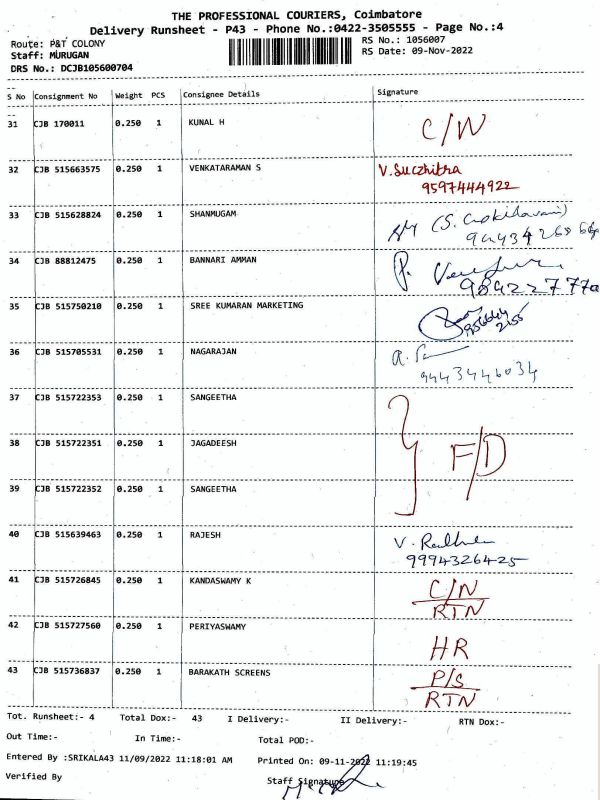 THE PROFESSIONAL COURIERS, Coimbatore
Delivery Runsheet - P43 - Phone No.:0422-3505555 - Page No.:4
Route: P&T COLONY
RS No.: 1056007
Staff: MURUGAN
RS Date: 09-Nov-2022
DRS No.: DCJB105600704
S No Consignment No Weight PCS Consignee Details Signature
31 CJB 170011 0.250 1 KUNAL H C/N
32 CJB 515663575 0.250 1 VENKATARAMAN S V. Suczhitra
9597444922
33 CJB 515628824 0.250 1 SHANMUGAM
34 CJB 88812475 0.250 1 BANNARI AMMAN P.
35 CJB 515750210 0.250 1 SREE KUMARAN MARKETING
36 CJB 515705531 0.250 1 NAGARAJAN
9443446034
37 CJB 515722353 0.250 1 SANGEETHA
38 CJB 515722351 0.250 1 JAGADEESH F/D
39 CJB 515722352 0.250 1 SANGEETHA
40 CJB 515639463 0.250 1 RAJESH V.
9994326425
41 CJB 515726845 0.250 1 KANDASWAMY K C/N
RTN
42 CJB 515727560 0.250 1 PERIYASWAMY HR
43 CJB 515736837 0.250 1 BARAKATH SCREENS P/S
RTN
Tot. Runsheet:- 4 Total Dox:- 43 I Delivery:- II Delivery:- RTN Dox:-
Out Time:- In Time:- Total POD:-
Entered By :SRIKALA43 11/09/2022 11:18:01 AM Printed On: 09-11-2022 11:19:45
Verified By Staff Signature